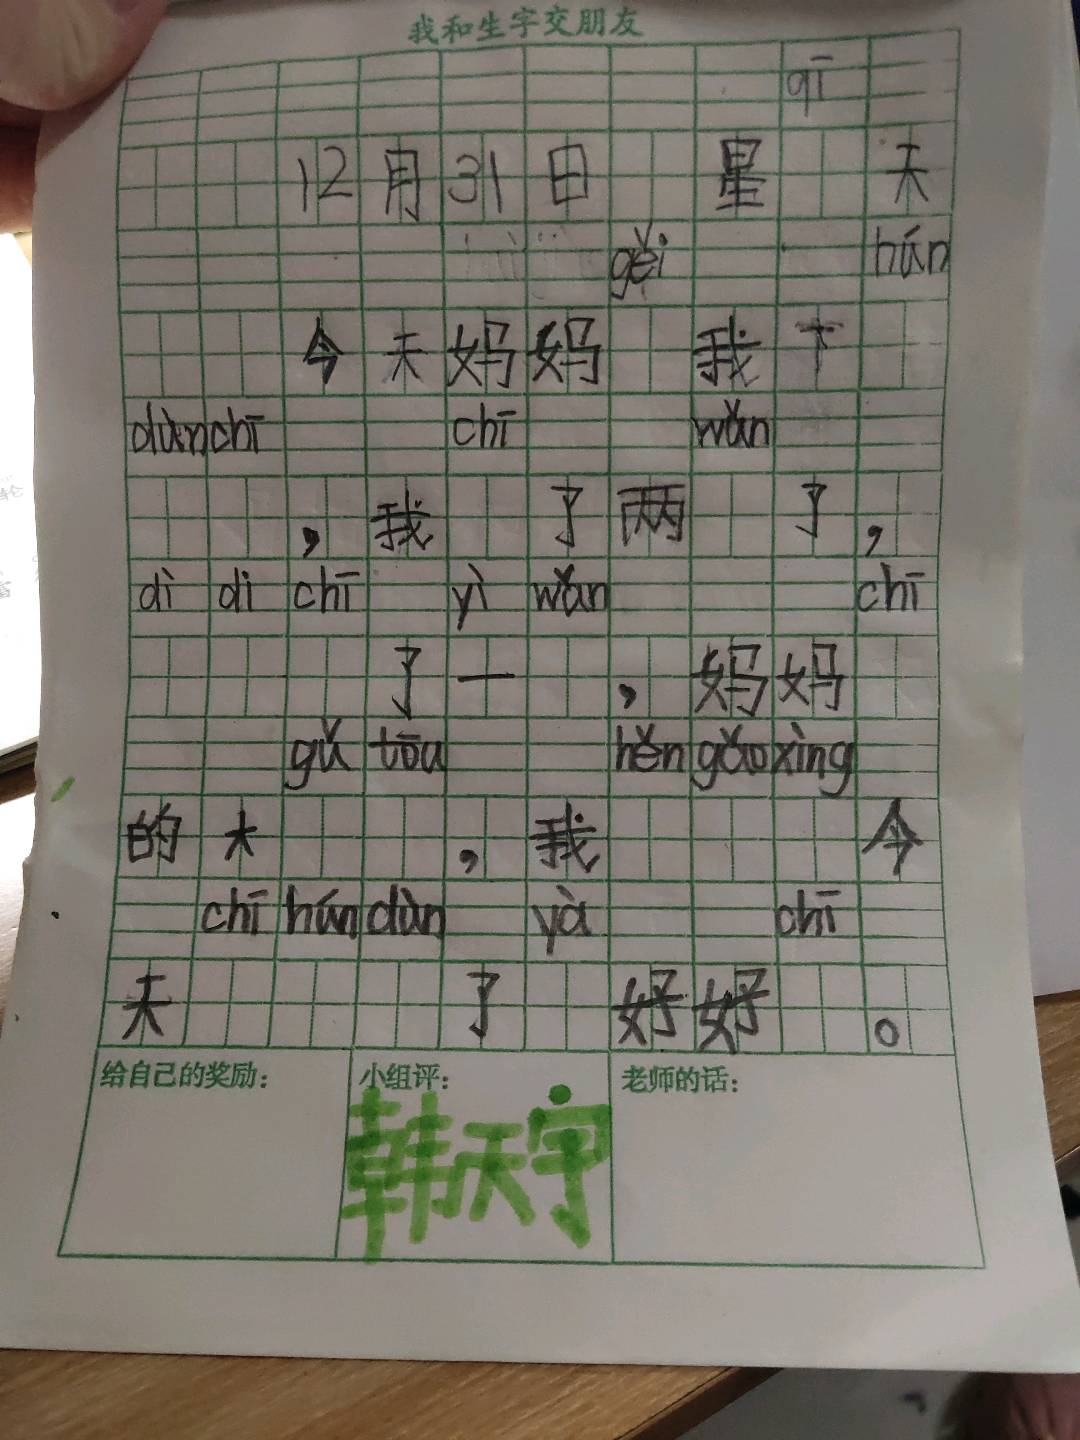 我和生字交朋友
qī
12月31日 星 天
gěi hún
今天妈妈 我下
dùn chī chī wǎn
，我 了两 了，
dì di chī yì wǎn chī
了一 ，妈妈
gǔ tōu hěn gāo xìng
的大 ，我 今
chī hún dùn yà chī
天 了 好好 。
给自己的奖励： 小组评： 老师的话：
韩天宇